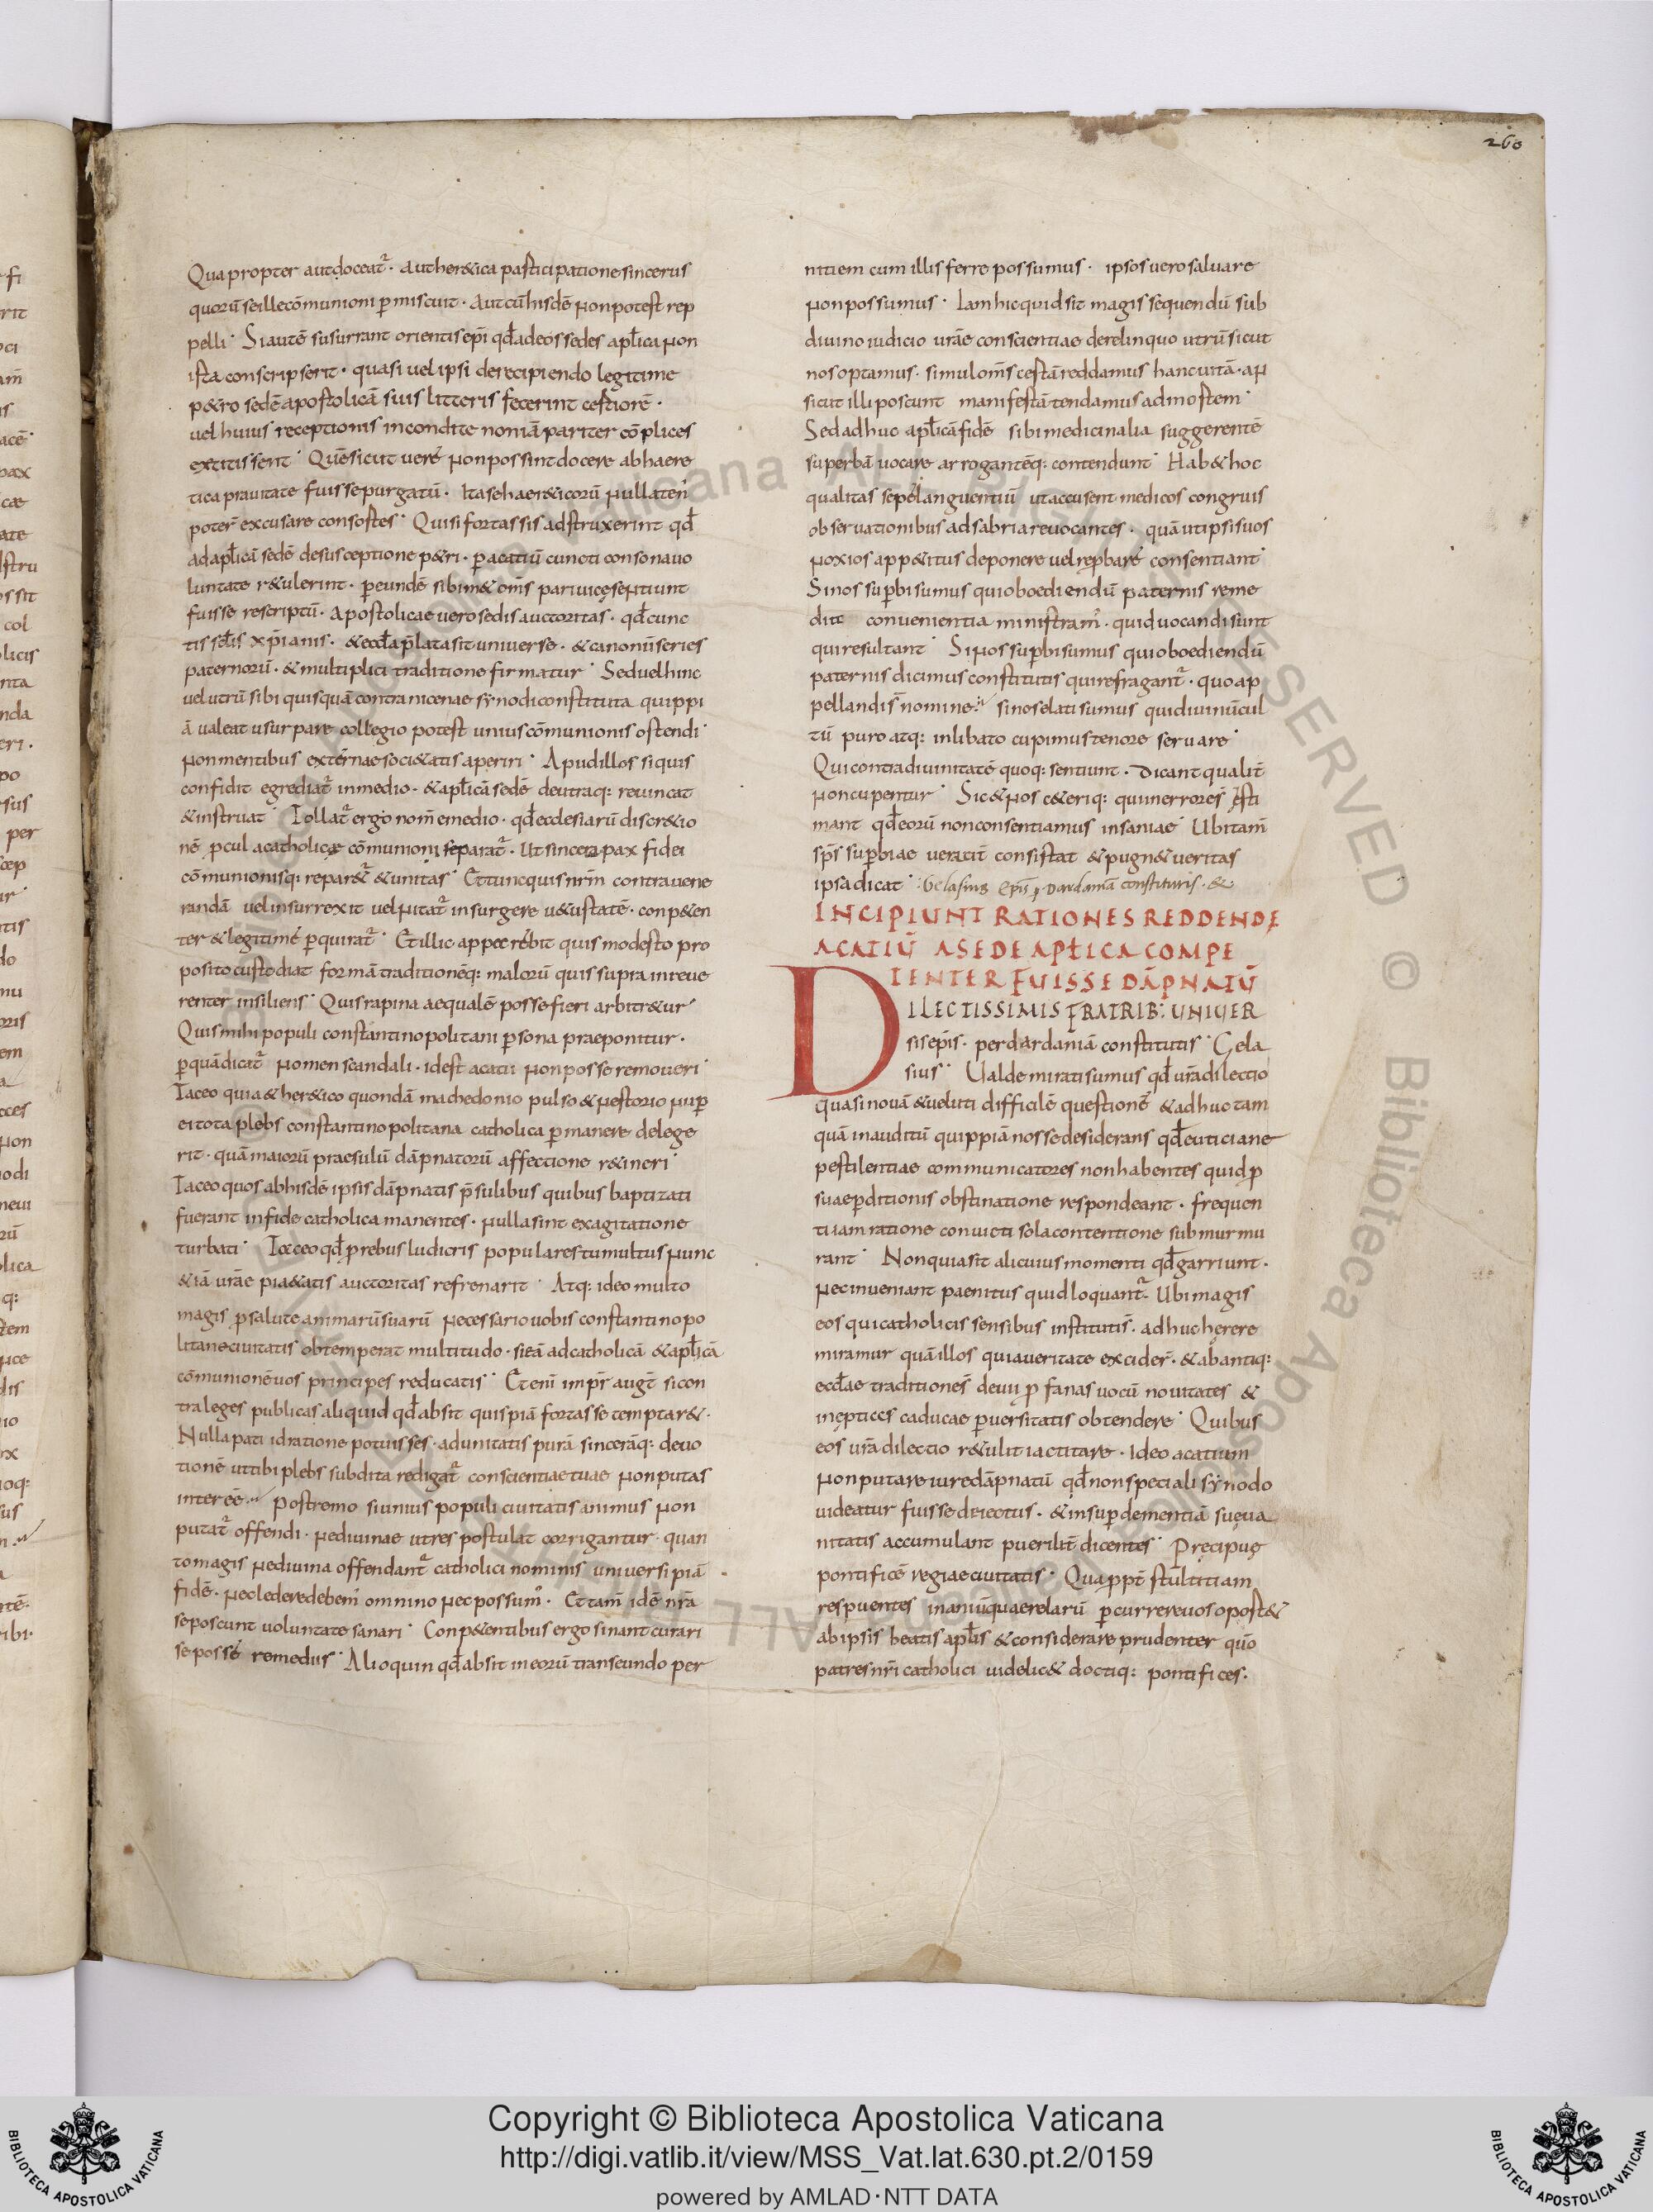 260
Quapropter aut doceat᷑· aut heretica pasticipatione sincerus
quorū se ille cōmunioni ꝑmiscuit· aut cū hisdē non potest rep
pelli· Si autē susurrant orientis epī qđ ad eos sedes aplica non
ista conscripserit· quasi vel ipsi de recipiendo legitime
p&ro sedē apostolicā suis litteris fecerint cestiorē·
vel huius receptionis incondite non iā pariter cōplices
extitissent· Quē sicut veré non possint docere ab haere
tica pravitate fuisse purgatū· Ita se haer&icorū nullaten᷒
poter̄ excusare consostes· Qui si fortassis adstruxerint qđ
ad aplicā sedē de susceptione p&ri· ꝑ acatiū cuncti consona vo
luntate r&ulerint· ꝑ eundē sibim& om̄s pari vice sentiunt
fuisse rescriptū· apostolicae vero sedis auctoritas· qđ cunc
tis sclis xp̄ianis· & eccła p̄lata sit universe· & canonū series
paternorū· & multiplici traditione firmatur· Sed vel hinc
vel utrū sibi quisquā contra nicenae synodi constituta quippi
ā valeat usurpare collegio potest unius cōmunionis ostendi·
non mentibus extérnae soci&atis aperiri· Apud illos si quis
confidit egrediat᷑ in medio· & aplicā sedē deutraq: revincat
& instruat· Tollat᷑ ergo nom̄ e medio· qđ ecclesiarū discr&io
nē ꝓcul a catholicae cōmunioni separat᷑· Ut sincera pax fidei
cōmunionisq: repar&᷑ & unitas· Et tunc quis nrm̄ contra vene
randā vel insurrexit vel nitat᷑ insurgere v&ustatē· conp&en
ter & legitimé ꝑquirat᷑· Et illic apparébit quis modesto pro
posito custodiat formā traditionēq: malorū quis supra inreve
renter insiliens· Quis rapina aequalē posse fieri arbitr&ur·
Quis mihi populi constantinopolitani ꝑsona praeponitur·
ꝑ quā dicit᷑ nomen scandali· idest acatii non posse removeri·
Taceo quia & her&ico quondā machedonio pulso & nestorio nuꝑ
ei tota plebs constantinopolitana catholica ꝑmanere delege
rit· quā maiorū praesulū dāpnatorū affectione r&ineri·
Taceo quos ab hisdē ipsis dāpnatis p̄sulibus quibus baptizati
fuerant in fide catholica manentes· nulla sint exagitatione
turbati· Taceo qđ ꝓ rebus ludicris populares tumultus nunc
& iā urāe pia&atis auctoritas refrenarit· Atq: ideo multo
magis ꝓ salute animarū suarū necessario vobis constantinopo
litane civitatis obtemperat multitudo· si eā ad catholicā & aplicā
cōmunionē vos principes reducatis· Et enī impr̄ augt̄ si con
tra leges publicas aliquid qđ absit quispiā fortasse temptar&·
Nulla pati id ratione potuisses· ad unitatis purā sincerāq: devo
tionē ut tibi plebs subdita redigat᷑ conscientiae tuae non putas
interee̅· Postremo si unius populi civitatis animus non
putat᷑ offendi· ne divinae ut res postulat corrigantur· quan
to magis ne divina offendant᷑ catholici nominis universi piā
fidē· nec ledere debem᷒ omnino nec possum᷒· Et tam̄ idē nr̄ā
se poscunt voluntate sanari· Conp&entibus ergo sinant curari
se possé remediis· Alioquin qđ absit in eorū transeundo per
nitiem cum illis ferre possumus· ipsos vero salvare
non possumus· Iam hic quid sit magis sequendū sub
divino iudicio urāe conscientiae derelinquo utrū sicut
nos optamus· simul om̄s cestā reddamus hanc vitā· an
sicut illi poscunt manifestā tendamus ad mostem·
Sed adhuc aplicā fidē sibi medicinalia suggerentē
superbā vocare arrogantēq: contendunt· Hab& hoc
qualitas sepe languentiū ut accusent medicos congruis
observationibus ad sabria revocantes· quā ut ipsi suos
noxios app&itus deponere vel reꝓbaré consentiant·
Si nos suꝑbi sumus qui oboediendū paternis reme
diis convenientia ministram᷒· quid vocandi sunt
qui resultant· Si nos suꝑbi sumus qui oboediendū
paternis dicimus constitutis qui refragant᷑· quo ap
pellandi s̄ nomine· si nos elati sumus qui divinū cul
tū puro atq: inlibato cupimus tenore servare·
Qui contra divinitatē quoq: sentiunt· dicant qualit̄
noncupentur· Sic & nos c&eriq: qui in errores ēsti
mant qđ eorū non consentiamus insaniae· Ubi tam̄
sp̄s suꝑbiae veracit̄ consistat & pugn& veritas
ipsa dicat· Gelasius Epīs ꝑ Dardaniā constitutis· &
INCIPIUNT RATIONES REDDENDE
ACATIŪ A SEDE APŁICA COMPE
TENTER FUISSE DĀPNATŪ
DILECTISSIMIS FRATRIB: UNIVER
sis epīs· per dardaniā constitutis· Gela
sius· Valde mirati sumus qđ ur̄a dilectio
quasi novā & veluti difficilē questionē & adhuc tam
quā inauditū quippiā nosse desiderans qđ euticiane
pestilentiae communicatores non habentes quid ꝓ
suae ꝑditionis obstinatione respondeant· frequen
ti iam ratione convicti sola contentione submurmu
rant· Non quia sit alicuius momenti qđ garriunt·
nec inveniant paenitus quid loquant᷑· Ubi magis
eos qui catholicis sensibus institutis· adhuc herere
miramur quā illos qui a veritate excider̄· & ab antiq:
eccłae traditiones devii ꝓfanas vocū novitates &
inepticcs caducae ꝑversitatis obtendere· Quibus
eos ur̄a dilectio r&ulit iactitare· Ideo acatium
non putare iure dāpnatū qđ non speciali synodo
videatur fuisse deiectus· & insuꝑ dementiā sue va
nitatis accumulant puerilit̄ dicentes· Precipue
pontificē regiae civitatis· Quappt̄ stultitiam
respuentes inaniū quaerelarū ꝑcurrere vos oport&
ab ipsis beatis aplis & considerare prudenter quō
patres nr̄i catholici videlic& doctiq: pontifices·
Copyright © Biblioteca Apostolica Vaticana
http://digi.vatlib.it/view/MSS_Vat.lat.630.pt.2/0159
powered by AMLAD·NTT DATA
BIBLIOTECA APOSTOLICA VATICANA
BIBLIOTECA APOSTOLICA VATICANA